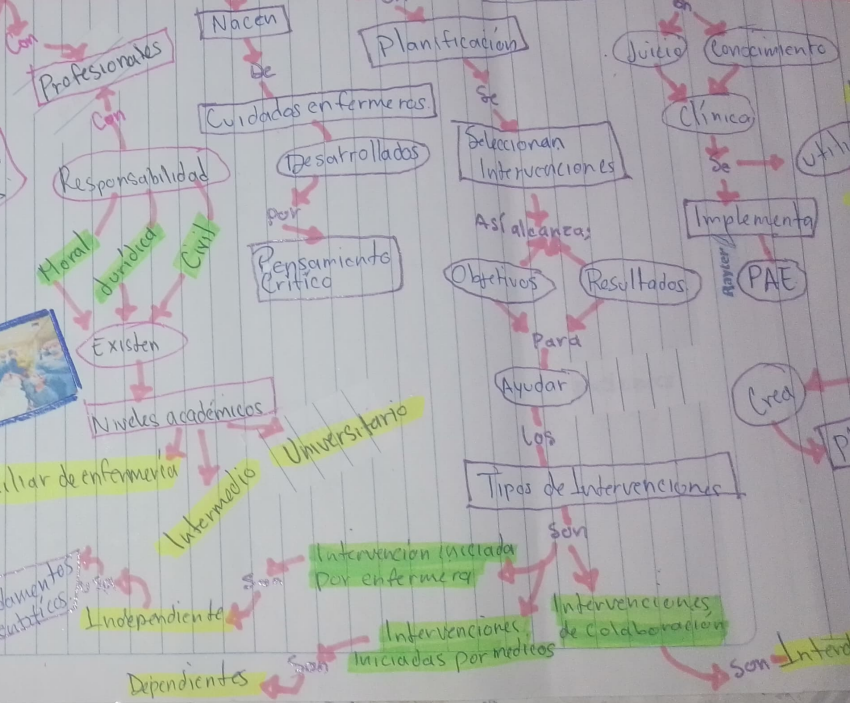 Con
Profesionales
Con
Responsabilidad
Moral
Jurídica
Civil
Existen
Niveles académicos
iliar de enfermería
Intermedio
Universitario
Nacen
De
Cuidados enfermeros
Desarrollados
por
Pensamiento
Crítico
Planificación
Se
Seleccionan
Intervenciones
Así alcanza:
Objetivos
Resultados
Para
Ayudar
los
Tipos de Intervenciones
Son
Intervención iniciada
por enfermera
Son
Independiente
damentos
Intervenciones
Iniciadas por médicos
Son
Dependientes
Intervenciones
de colaboración
Son
Interd
en
Juicio
Conocimiento
Clínica
Se
utili
Implementa
PAE
Crea
P